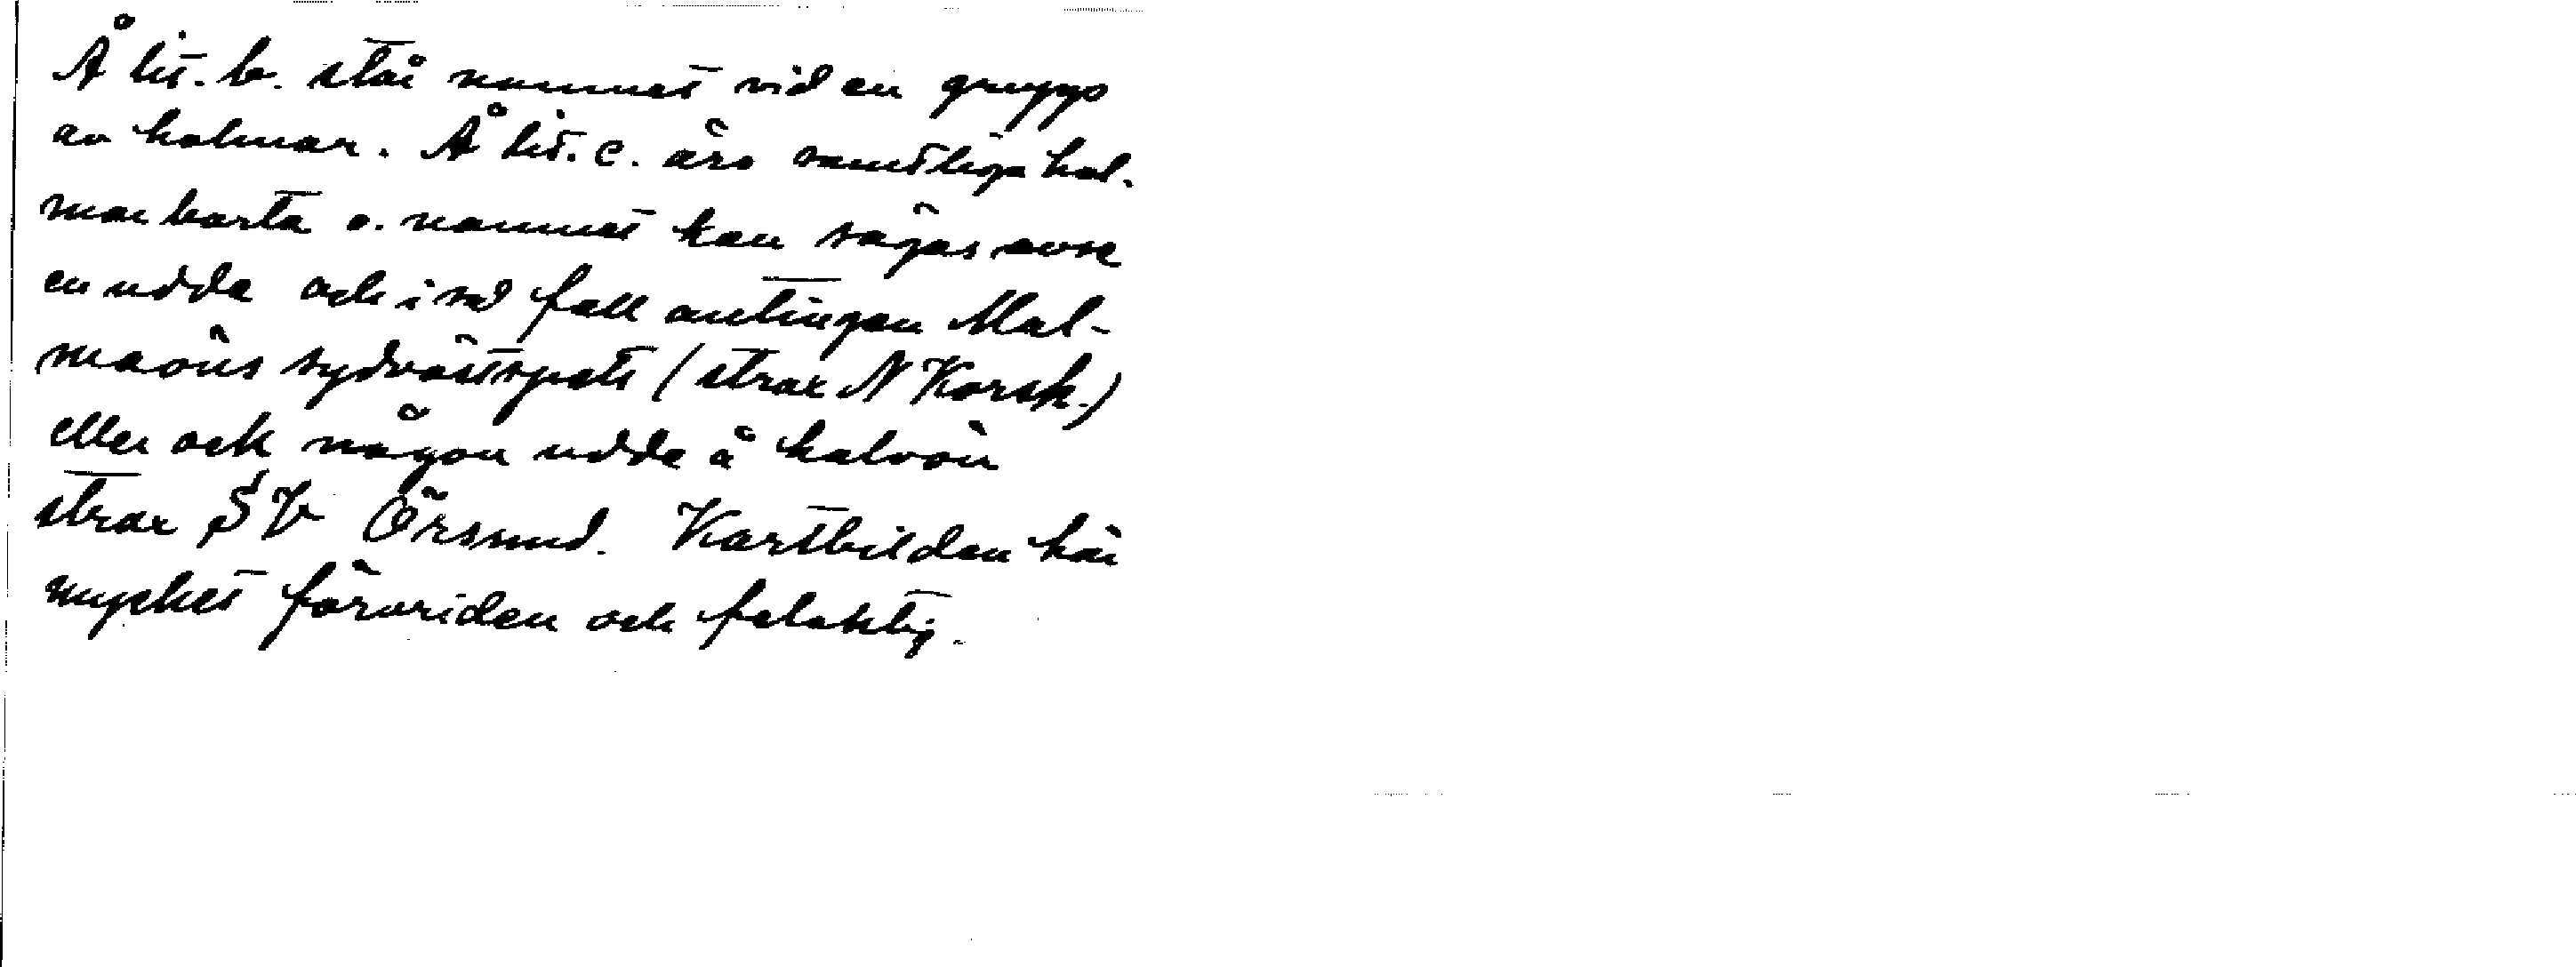 Å lit. b. står namnet vid en grupp
av holmar. Å lit. c. äro samtliga hol-
mar borta o. namnet kan sägas avse
en udda och i så fall antingen Mal-
maöns sydvästspets (strax N Korsh.)
eller ock någon udde å halvön
strax SV Örssund. Kartbilden här
mycket förvriden och felaktig.